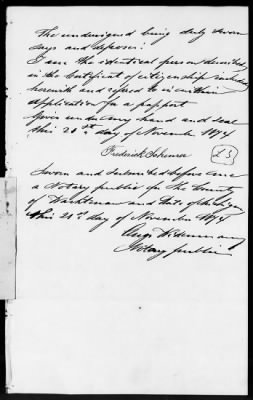 The undersigned being duly sworn
says and deposes:
I am the identical person described
in the Certificate of citizenship
herewith and referred to in within
application for a passport
Given under my hand and seal
this 20th day of November 1894
Frederick Scherrer
23
Sworn and subscribed before me
a Notary public for the County
of Washtenaw and State of Michigan
this 20th day of November 1894
Notary public